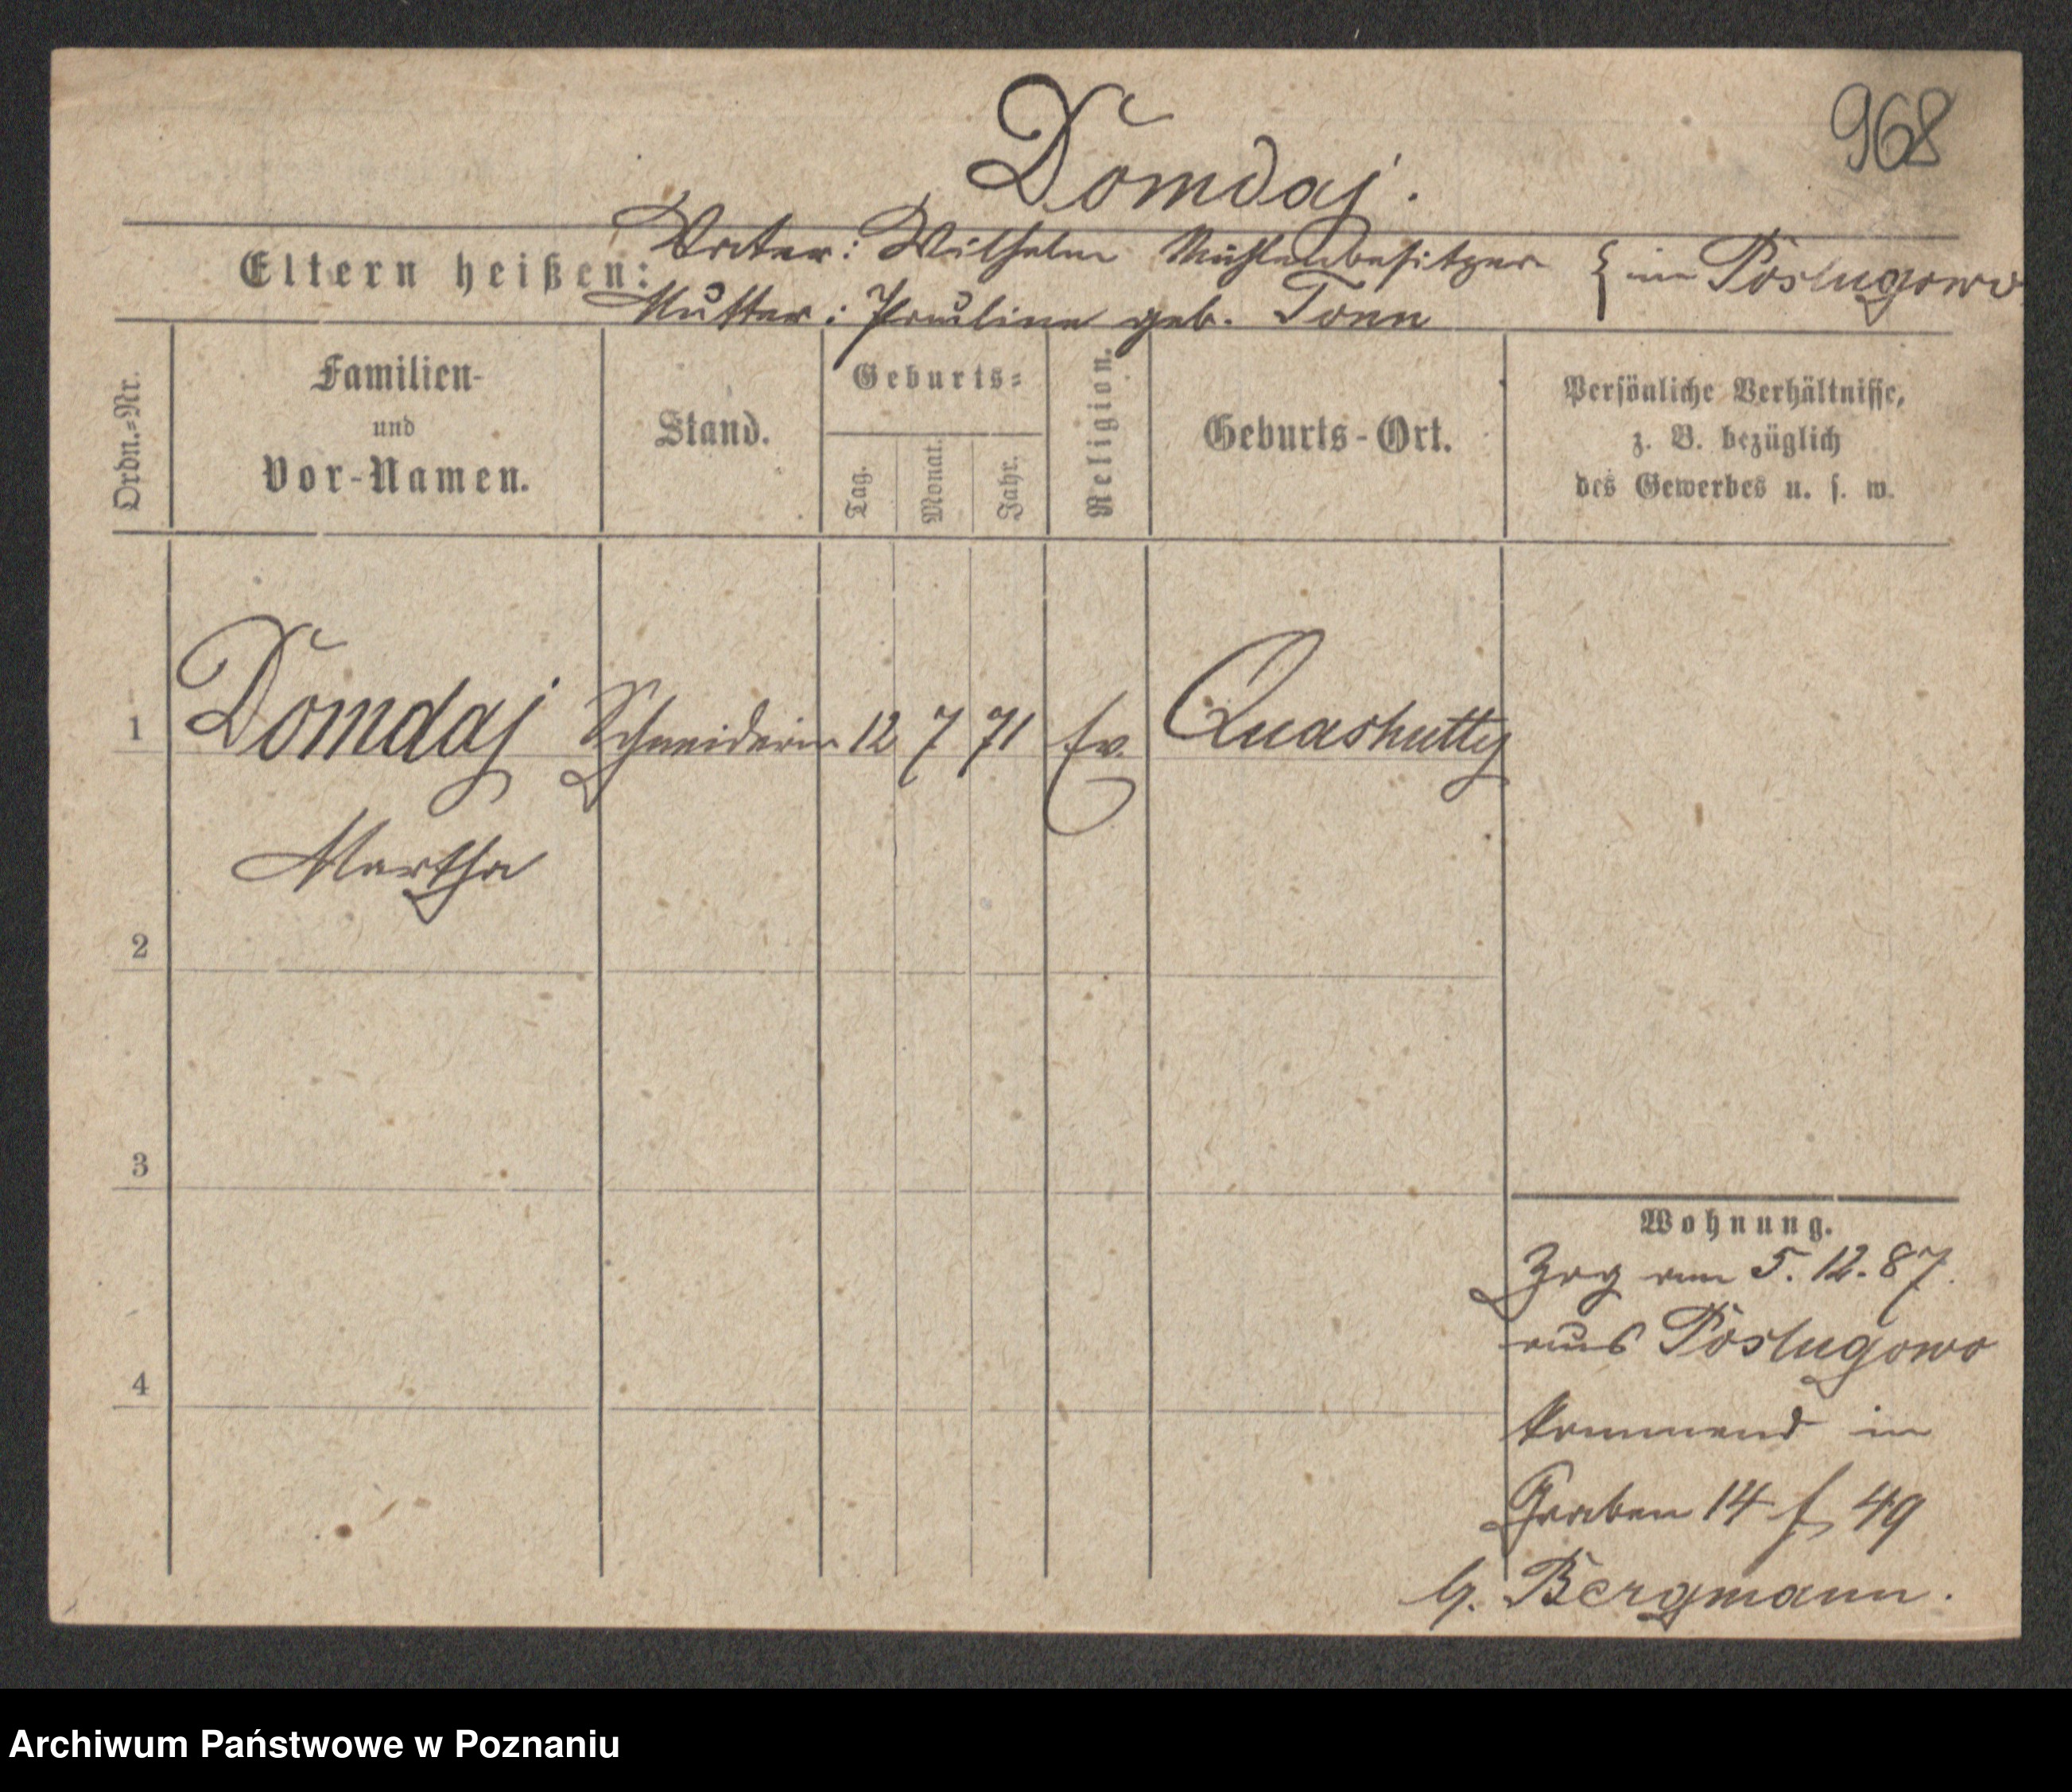 968
Domdaj.
Eltern heißen:
Vater: Wilhelm Mühlenbesitzer } in Poslugowo
Mutter: Pauline geb. Tonn
Ordn.-Nr.
Familien-
und
Vor-Namen.
Stand.
Geburts-
Tag.
Monat.
Jahr.
Religion.
Geburts-Ort.
Persönliche Verhältnisse,
z. B. bezüglich
des Gewerbes u. s. w.
1 Domdaj Schneiderin 12 7 71 Ev. Quashutty
Martha
2
3
4
Wohnung.
Zog am 5. 12. 87.
aus Poslugowo
kommend in
Graben 14 f 49
b. Bergmann.
Archiwum Państwowe w Poznaniu